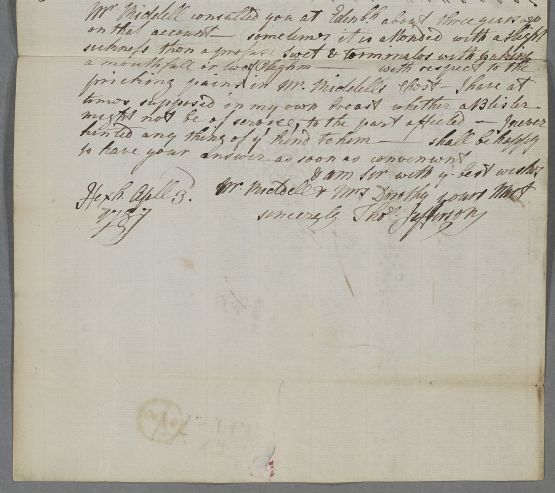 Mr Riddell consulted you at Edinbh about three years ago
on that account — sometimes it is attended with a slight
sickness then a profuse swet & terminates with puking
a mouthfull or two of Phlegm — with respect to the
pricking pains in Mr. Riddells Chest — I have at
times supposed in my own breast whether a Blister
might not be of service to the part affected — I never
hinted any thing of ye kind to him — shall be happy
to have your answer as soon as convenient
I am Sir with ye best wishes
Mr Riddell & Mrs Dorothy yours Most
Hexh. Aprill 3.
1787
sincerely Thos. Jefferson